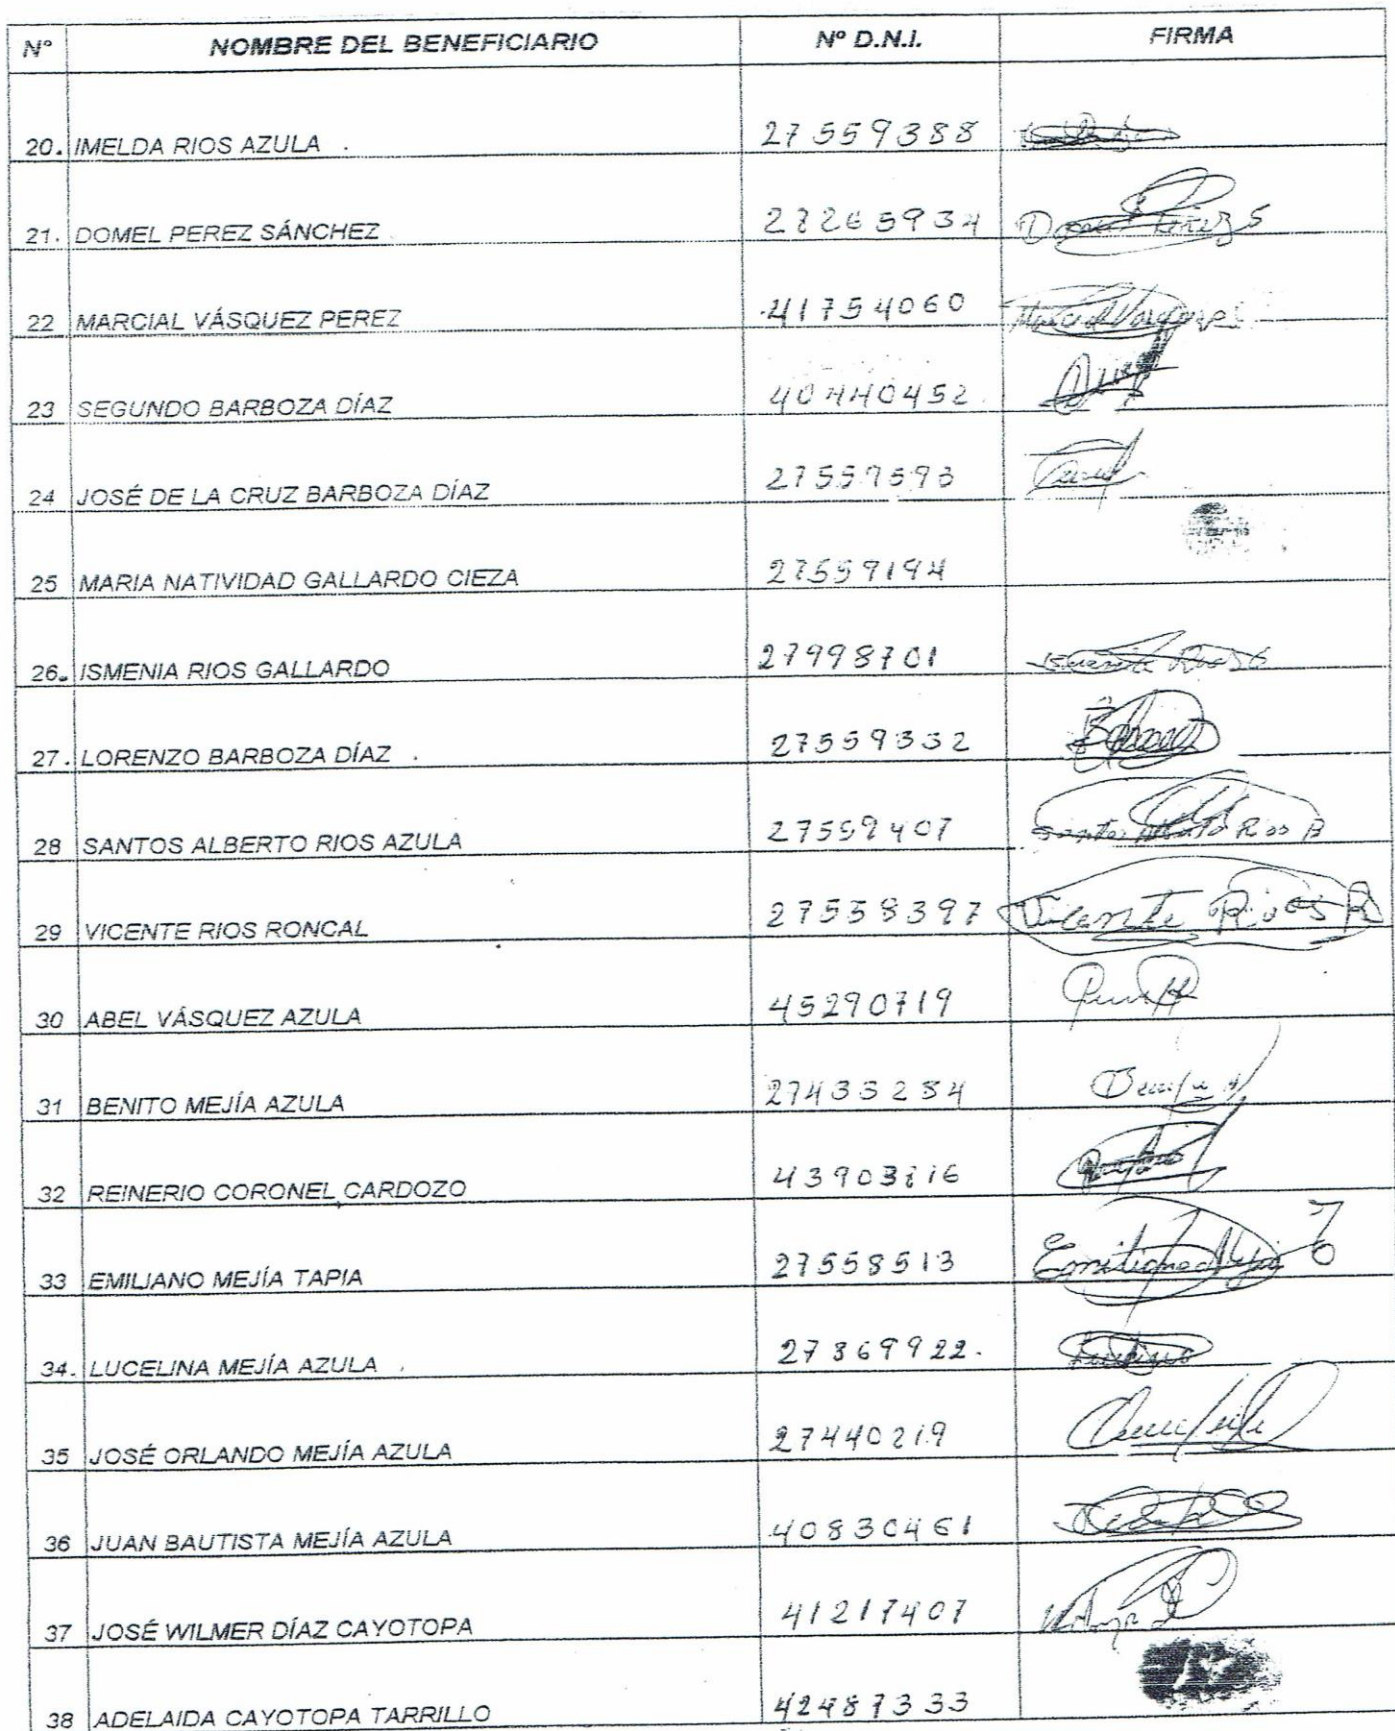 N° NOMBRE DEL BENEFICIARIO N° D.N.I. FIRMA
20. IMELDA RIOS AZULA 27559388
21. DOMEL PEREZ SÁNCHEZ 27265934
22 MARCIAL VÁSQUEZ PEREZ 41754060
23 SEGUNDO BARBOZA DÍAZ 40440452
24 JOSÉ DE LA CRUZ BARBOZA DÍAZ
25 MARIA NATIVIDAD GALLARDO CIEZA 27559194
26. ISMENIA RIOS GALLARDO 27998701
27. LORENZO BARBOZA DÍAZ 27559332
28 SANTOS ALBERTO RIOS AZULA 27559407 Santos Alberto Rios A
29 VICENTE RIOS RONCAL 27558397 Vicente Rios R
30 ABEL VÁSQUEZ AZULA 45290719
31 BENITO MEJÍA AZULA 27433284
32 REINERIO CORONEL CARDOZO
33 EMILIANO MEJÍA TAPIA 27558513 Emiliano Mejia T
34. LUCELINA MEJÍA AZULA 27369922.
35 JOSÉ ORLANDO MEJÍA AZULA 27440219
36 JUAN BAUTISTA MEJÍA AZULA 40830461
37 JOSÉ WILMER DÍAZ CAYOTOPA 41217407
38 ADELAIDA CAYOTOPA TARRILLO 42487333